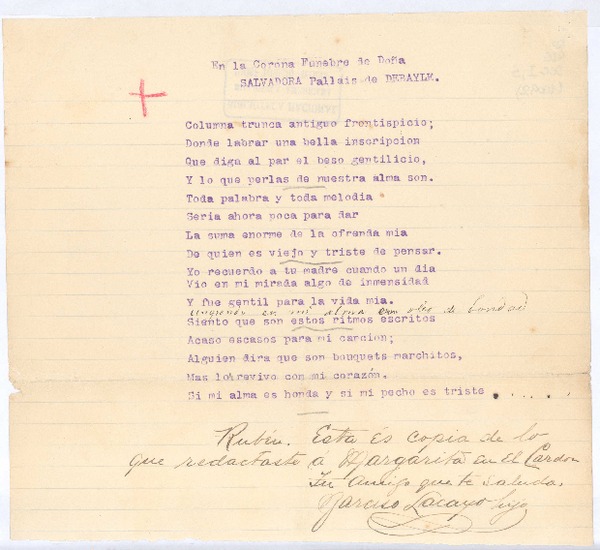 En la Corona Funebre de Doña
SALVADORA Pallais de DEBAYLE.
Columna trunca antiguo frontispicio;
Donde labrar una bella inscripcion
Que diga al par el beso gentilicio,
Y lo que perlas de nuestra alma son.
Toda palabra y toda melodia
Seria ahora poca para dar
La suma enorme de la ofrenda mia
De quien es viejo y triste de pensar.
Yo recuerdo a tu madre cuando un dia
Vio en mi mirada algo de inmensidad
Y fue gentil para la vida mia.
ungiendo en mi alma con oleo de bondad
Siento que son estos ritmos escritos
Acaso escasos para mi cancion;
Alguien dira que son bouquets marchitos,
Mas lo revivo con mi corazón.
Si mi alma es honda y si mi pecho es triste .....
Rubén. Esta és copia de lo
que redactaste á Margarita en El Cardon
Tu amigo que te saluda,
Narciso Lacayo hijo